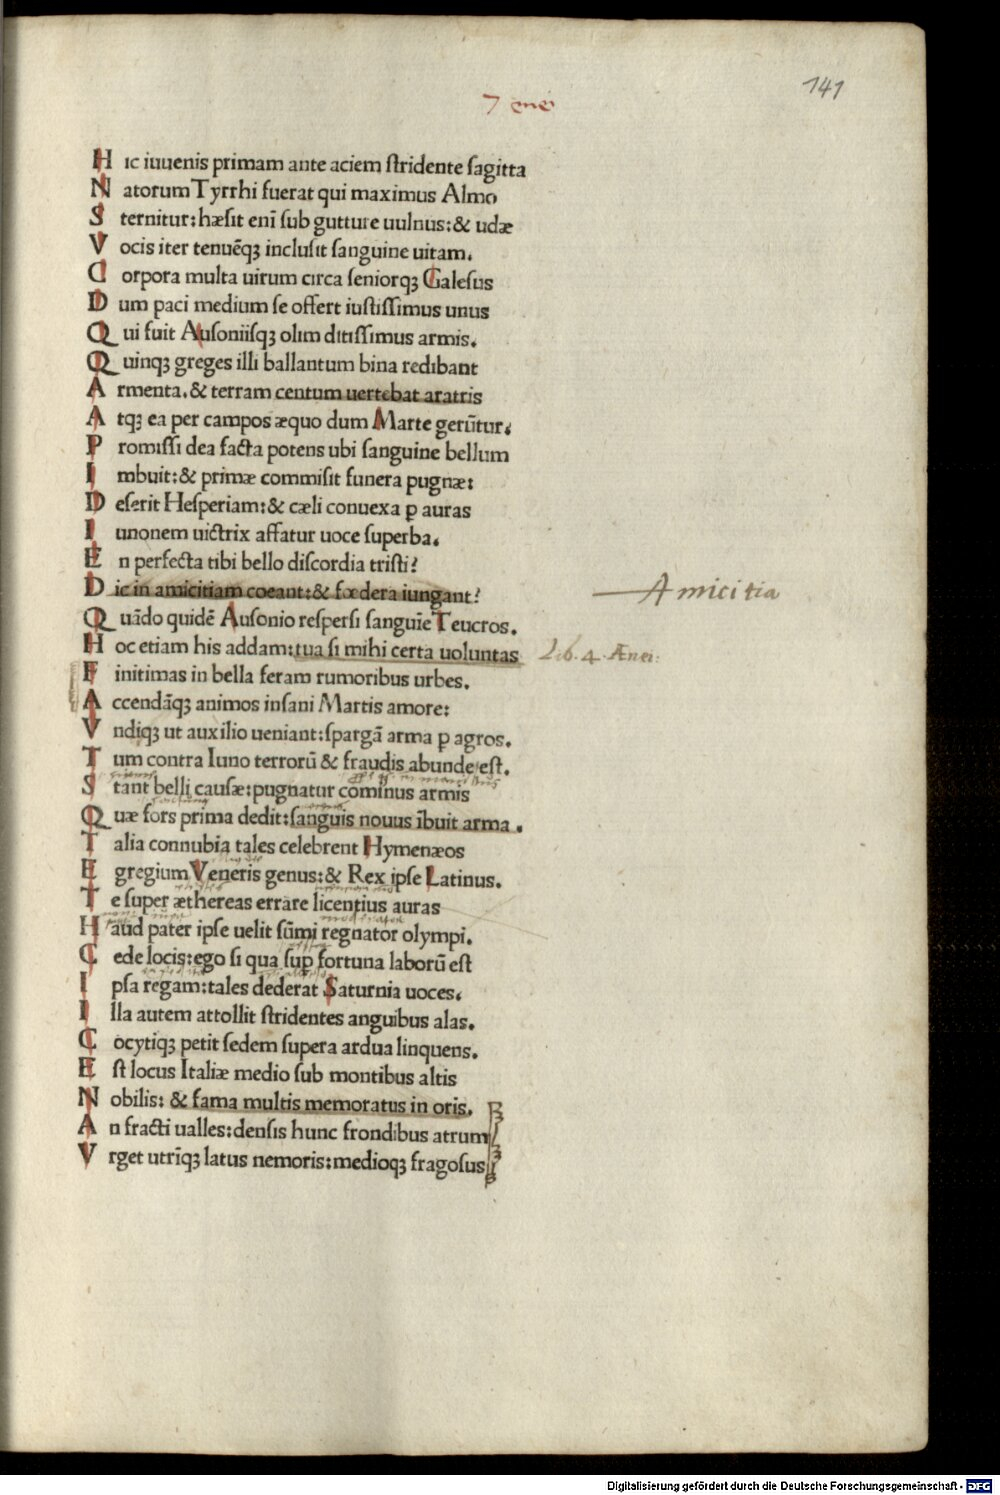 141
7 enei
Hic iuuenis primam ante aciem ſtridente ſagitta
Natorum Tyrrhi fuerat qui maximus Almo
Sternitur: hæſit enĩ ſub gutture uulnus: & udæ
Vocis iter tenuẽqꝫ incluſit ſanguine uitam.
Corpora multa uirum circa ſeniorqꝫ Galeſus
Dum paci medium ſe offert iuſtiſſimus unus
Qui fuit Auſoniiſqꝫ olim ditiſſimus armis.
Quinqꝫ greges illi ballantum bina redibant
Armenta. & terram centum uertebat aratris
Atqꝫ ea per campos æquo dum Marte gerũtur.
Promiſſi dea facta potens ubi ſanguine bellum
Imbuit: & primæ commiſit funera pugnæ:
Deſerit Heſperiam: & cæli conuexa ꝑ auras
Iunonem uictrix affatur uoce ſuperba.
En perfecta tibi bello diſcordia triſti?
Dic in amicitiam coeant: & fœdera iungant?
Amicitia
Quãdo quidẽ Auſonio reſperſi ſanguĩe Teucros.
Hoc etiam his addam: tua ſi mihi certa uoluntas
Lib. 4. Ænei:
Finitimas in bella feram rumoribus urbes.
Accendãqꝫ animos inſani Martis amore:
Vndiqꝫ ut auxilio ueniant: ſpargã arma ꝑ agros.
Tum contra Iuno terrorũ & fraudis abunde eſt.
Stant belli cauſæ: pugnatur cominus armis
Quæ fors prima dedit: ſanguis nouus ĩbuit arma.
Talia connubia tales celebrent Hymenæos
Egregium Veneris genus: & Rex ipſe Latinus.
Te ſuper æthereas errare licentius auras
Haud pater ipſe uelit ſũmi regnator olympi.
Cede locis: ego ſi qua ſuꝑ fortuna laborũ eſt
Ipſa regam: tales dederat Saturnia uoces.
Illa autem attollit ſtridentes anguibus alas.
Cocytiqꝫ petit ſedem ſupera ardua linquens.
Eſt locus Italiæ medio ſub montibus altis
Nobilis: & fama multis memoratus in oris.
Anfracti ualles: denſis hunc frondibus atrum
Vrget utrĩqꝫ latus nemoris: medioqꝫ fragoſus
Digitalisierung gefördert durch die Deutsche Forschungsgemeinschaft - DFG